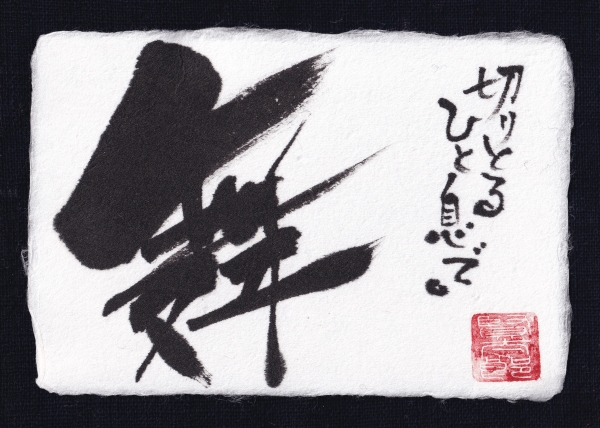 切りとる
ひと息で。
舞